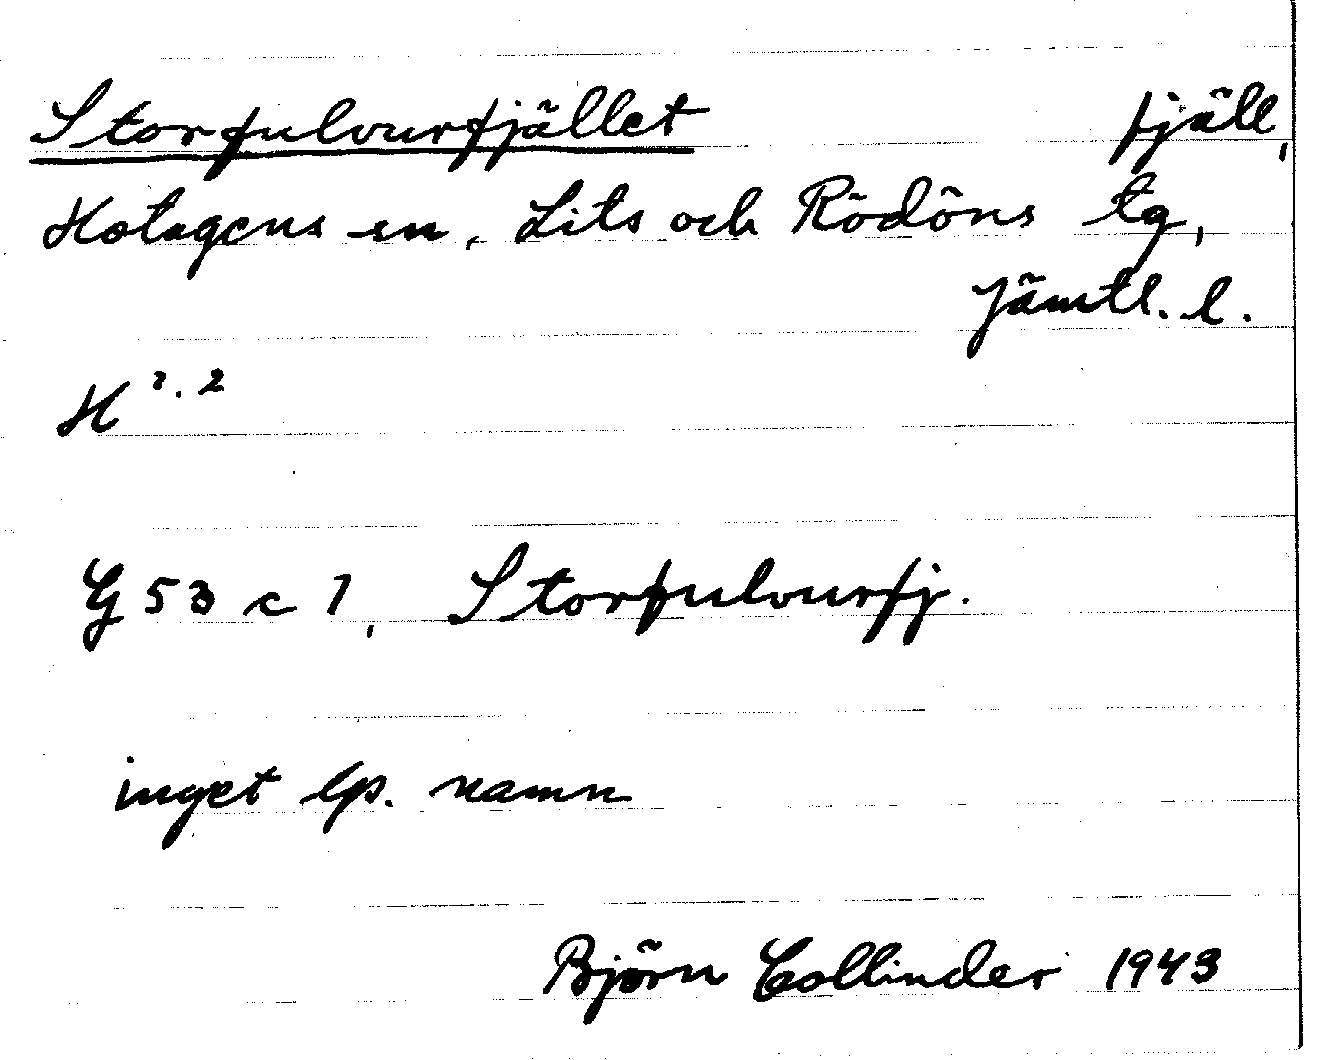 Storfulvurfjället fjäll,
Hotagens sn, Lits och Rödöns tg,
Jämtl. l.
H 2. 2
G 53 c 1, Storfulvurfj.
inget lp. namn
Björn Collinder 1943